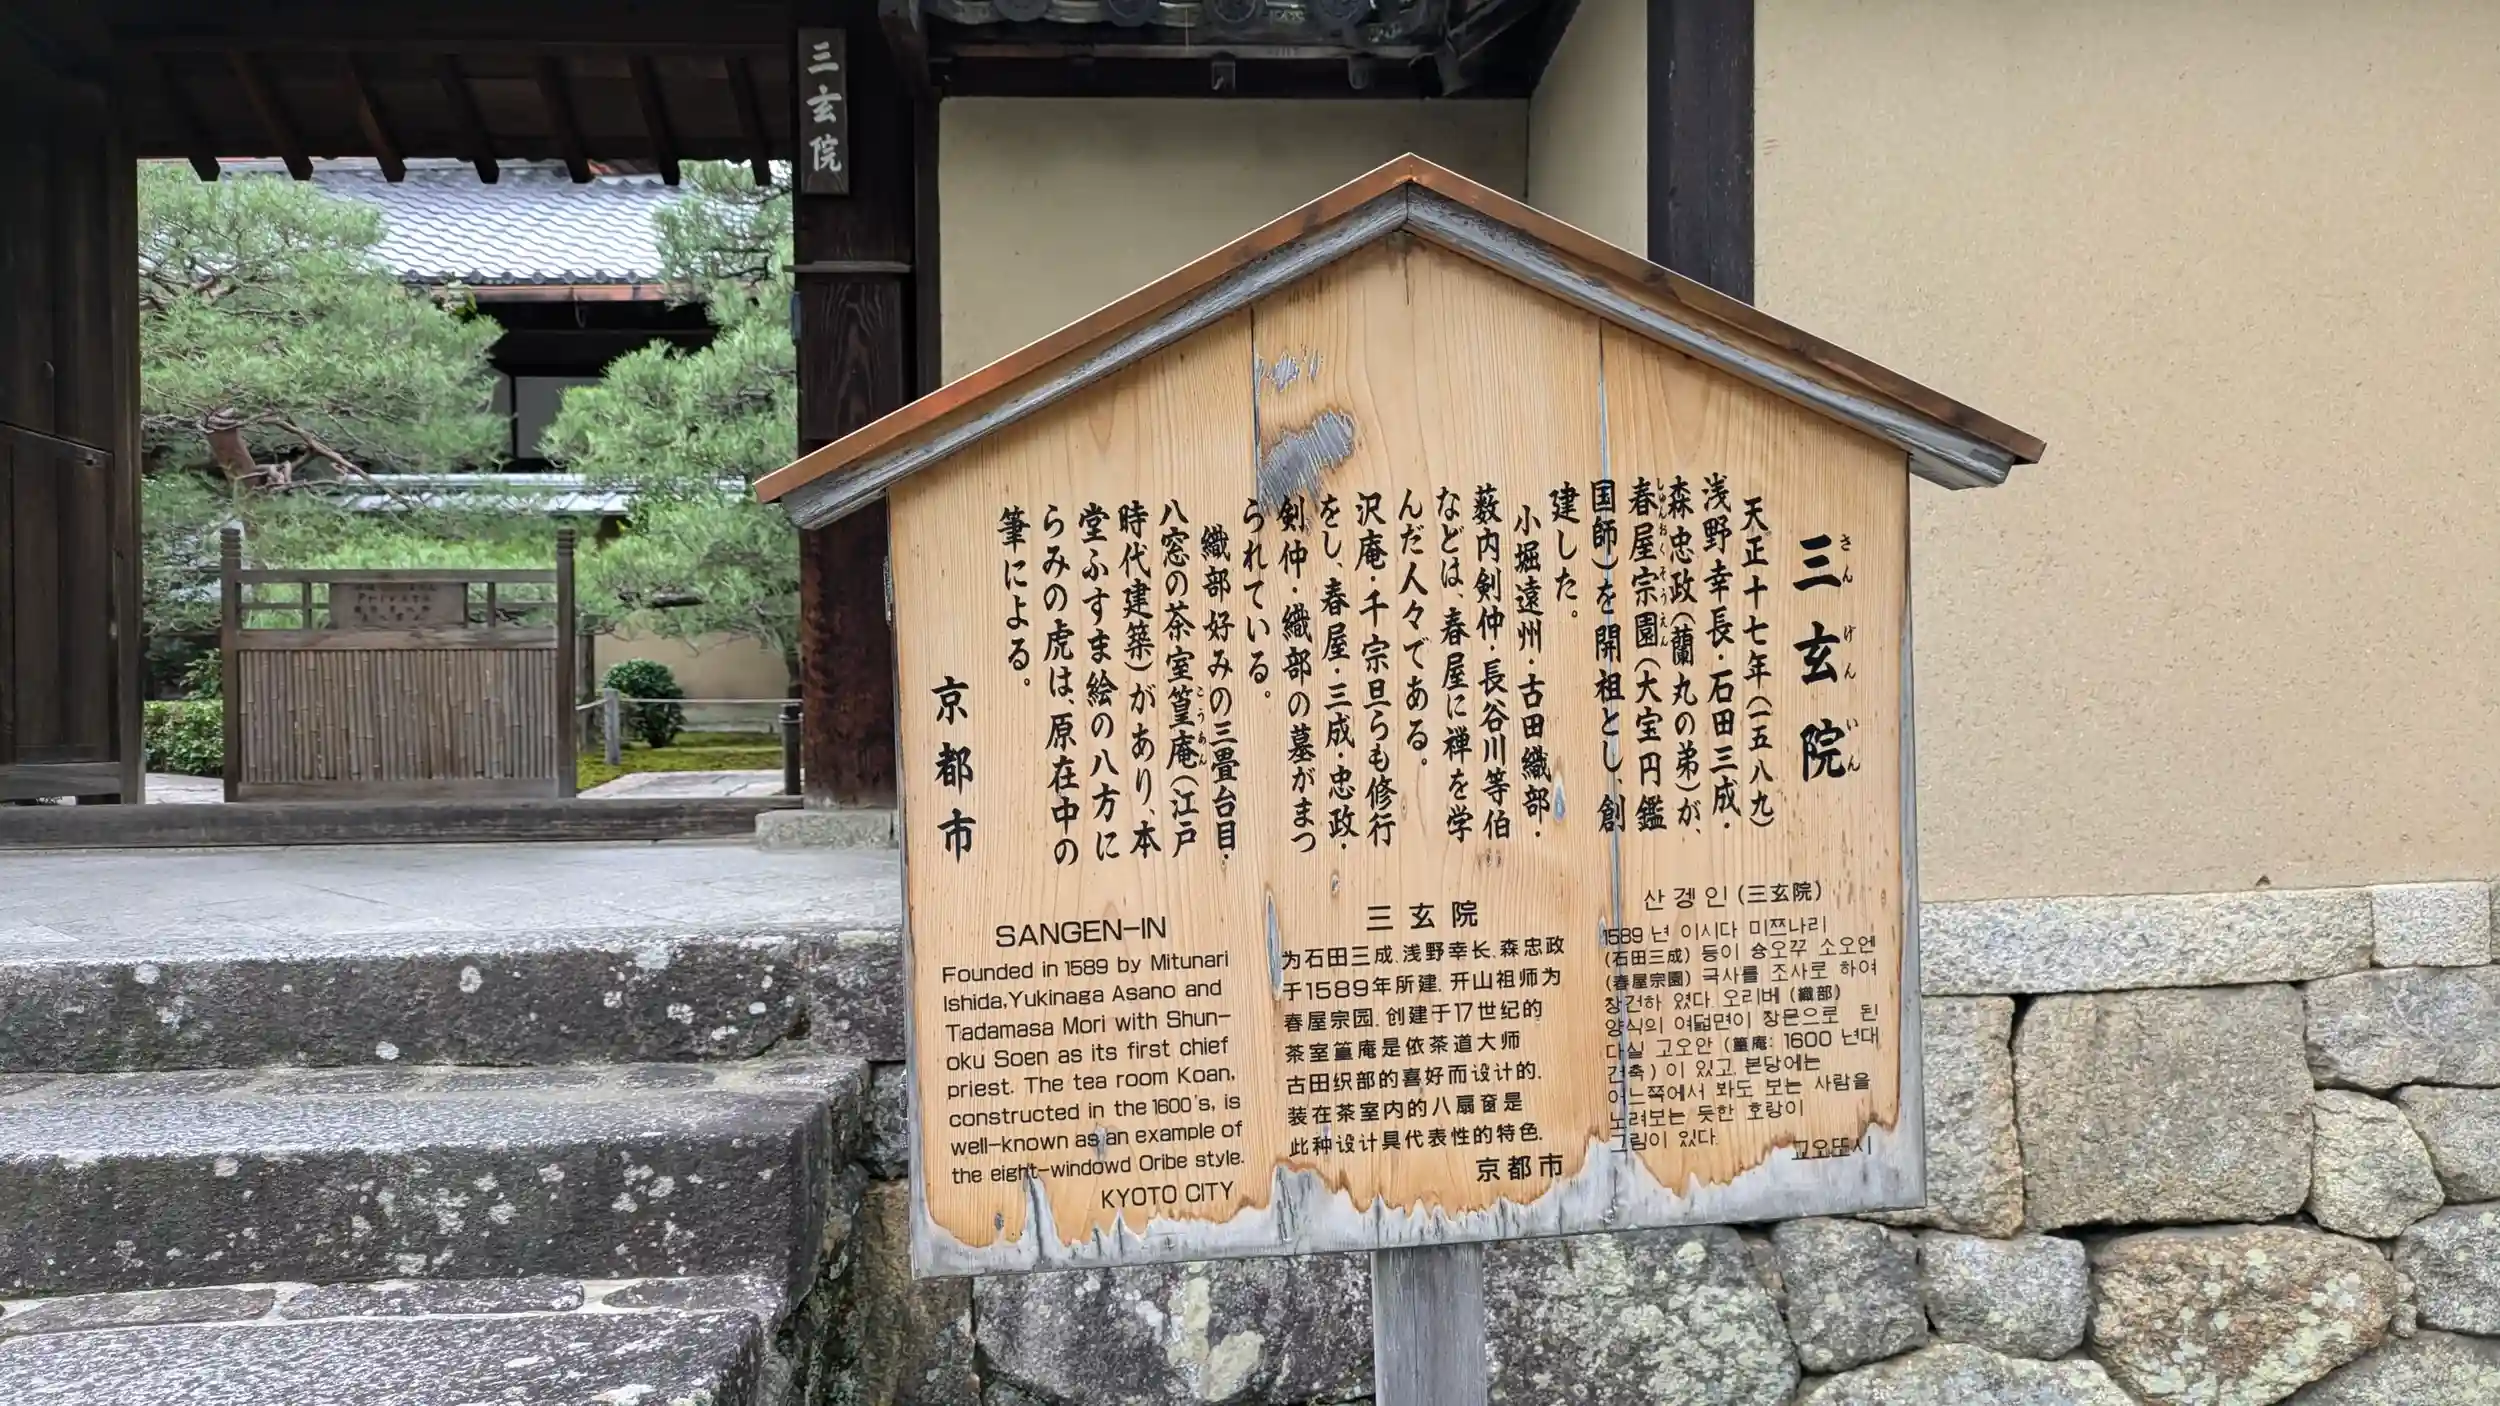 三玄院
三玄院
さんげんいん
天正十七年(一五八九)
浅野幸長・石田三成・
森忠政(蘭丸の弟)が、
春屋宗園(大宝円鑑
しゅんおくそうえん
国師)を開祖とし、創
建した。
小堀遠州・古田織部・
薮内剣仲・長谷川等伯
などは、春屋に禅を学
んだ人々である。
沢庵・千宗旦らも修行
をし、春屋・三成・忠政・
剣仲・織部の墓がまつ
られている。
織部好みの三畳台目・
八窓の茶室篁庵(江戸
こうあん
時代建築)があり、本
堂ふすま絵の八方に
らみの虎は、原在中の
筆による。
京都市
SANGEN-IN
Founded in 1589 by Mitunari
Ishida,Yukinaga Asano and
Tadamasa Mori with Shun-
oku Soen as its first chief
priest. The tea room Koan,
constructed in the 1600's, is
well-known as an example of
the eight-windowd Oribe style.
KYOTO CITY
三玄院
为石田三成.浅野幸长.森忠政
于1589年所建.开山祖师为
春屋宗园.创建于17世纪的
茶室篁庵是依茶道大师
古田织部的喜好而设计的.
装在茶室内的八扇窗是
此种设计具代表性的特色.
京都市
산겡인(三玄院)
1589년 이시다 미쯔나리
(石田三成) 등이 슝오꾸 소오엔
(春屋宗園) 국사를 조사로 하여
창건하 였다. 오리베 (織部)
양식의 여덟면이 창문으로 된
다실 고오안 (篁庵: 1600 년대
건축) 이 있고, 본당에는
어느쪽에서 봐도 보는 사람을
노려보는 듯한 호랑이
그림이 있다.
교오또시